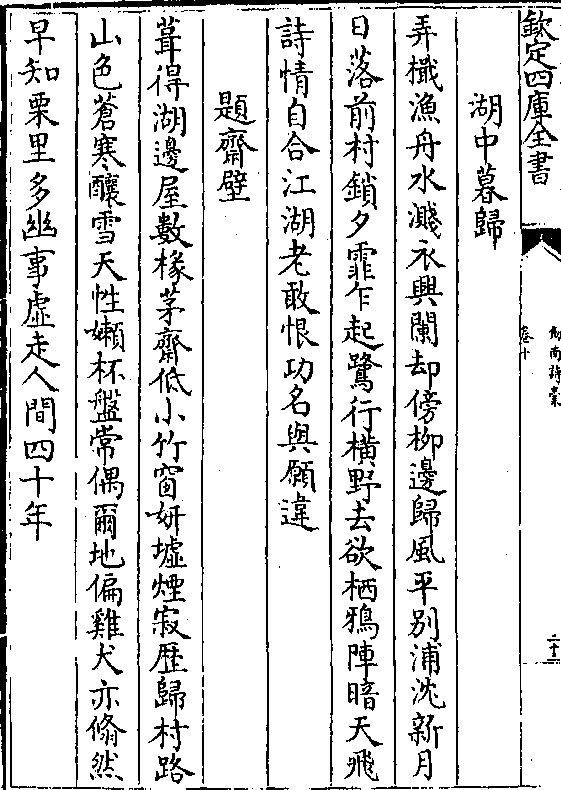 欽定四庫全書
劒南詩藁
卷十
二十二
湖中暮歸
弄檝漁舟水濺衣興闌却傍柳邊歸風平别浦沈新月
日落前村鎖夕霏乍起鷺行横野去欲栖鴉陣暗天飛
詩情自合江湖老敢恨功名與願違
題齋壁
葺得湖邊屋數椽茅齋低小竹窗妍墟煙寂歴歸村路
山色蒼寒釀雪天性嬾杯盤常偶爾地偏雞犬亦翛然
早知栗里多幽事虚走人間四十年